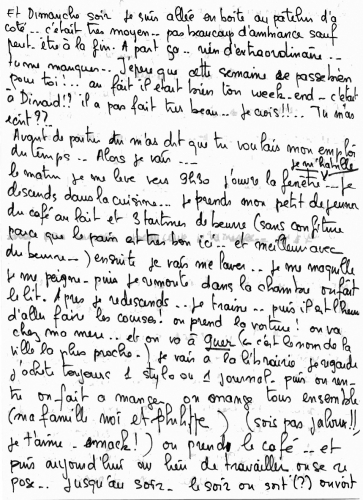 Et Dimanche soir je suis allée en boite au patelin d'à
coté .. c'était très moyen .. pas beaucoup d'ambiance sauf
peut-être à la fin. A part ça .. rien d'extraordinaire ..
tu me manques .. J'espère que cette semaine se passe bien
pour toi !... au fait il était bien ton week-end .. c'était
à Dinard !! il a pas fait très beau .. je crois !!.. Tu m'as
écrit ??
Avant de partir tu m'as dit que tu voulais mon emploi
du temps .. Alors je vais ...
je m'habille
le matin je me lève vers 9h30 j'ouvre la fenêtre .. je
descends dans la cuisine .. je prends mon petit dejeuner
du café au lait et 3 tartines de beurre (sans confiture
parce que le pain est très bon ici .. et meilleur avec
du beurre ..) ensuite je vais me laver .. je me maquille
je me peigne .. puis je remonte dans la chambre on fait
le lit. Après je redescends .. je traine .. puis il est l'heure
d'aller faire les courses ! on prend la voiture ! on va
chez ma mère .. et on va à Guer (c'est le nom de la
ville la plus proche .) je vais à la librairie je regarde
j'achète toujours 1 stylo ou 1 journal .. puis on ren-
tre on fait à manger, on mange tous ensemble
(ma famille moi et philippe) (sois pas jaloux !!
je t'aime .. smack !) on prend le café .. et
puis aujourd'hui au lieu de travailler on se re
pose .. jusqu'au soir .. le soir on sort (?) on voit